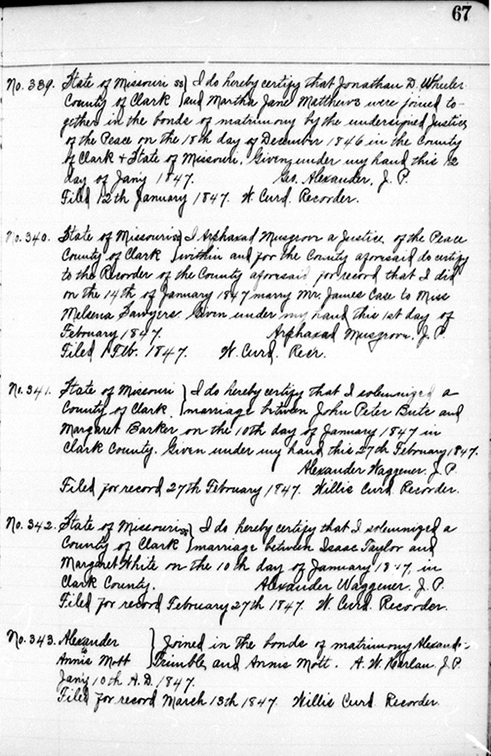 67
No. 339. State of Missouri ss } I do hereby certify that Jonathan D. Wheeler
County of Clark } and Martha Jane Matthews were joined to-
gether in the bonds of matrimony by the undersigned Justice
of the Peace on the 18th day of December 1846 in the County
of Clark & State of Missouri. Given under my hand this 12
day of Jan'y 1847. Geo. Alexander, J. P.
Filed 12th January 1847. W. Curd. Recorder.
No. 340. State of Missouri ss } I Arphaxad Musgrove a Justice of the Peace
County of Clark } within and for the County aforesaid do certify
to the Recorder of the County aforesaid for record that I did
on the 14th of January 1847 marry Mr. James Case to Miss
Sawyers. Given under my hand this 1st day of
February 1847. Arphaxad Musgrove, J. P.
Filed 1 Feb. 1847. W. Curd. Recr.
No. 341. State of Missouri } I do hereby certify that I solemnized a
County of Clark. } marriage between John Peter Bute and
Margaret Barker on the 10th day of January 1847 in
Clark County. Given under my hand this 27th February 1847.
Alexander Waggener. J. P.
Filed for record 27th February 1847. Willis Curd Recorder.
No. 342. State of Missouri ss } I do hereby certify that I solemnized a
County of Clark } marriage between Isaac Taylor and
Margaret White on the 10th day of January 1847, in
Clark County. Alexander Waggener. J. P.
Filed for record February 27th 1847. W. Curd. Recorder.
No. 343. Alexander } Joined in the bonds of matrimony Alexand-
Annis Mott } Trimble, and Annis Mott. A. W. Harlan, J. P.
Jan'y 10th A.D. 1847.
Filed for record March 13th 1847. Willis Curd. Recorder.